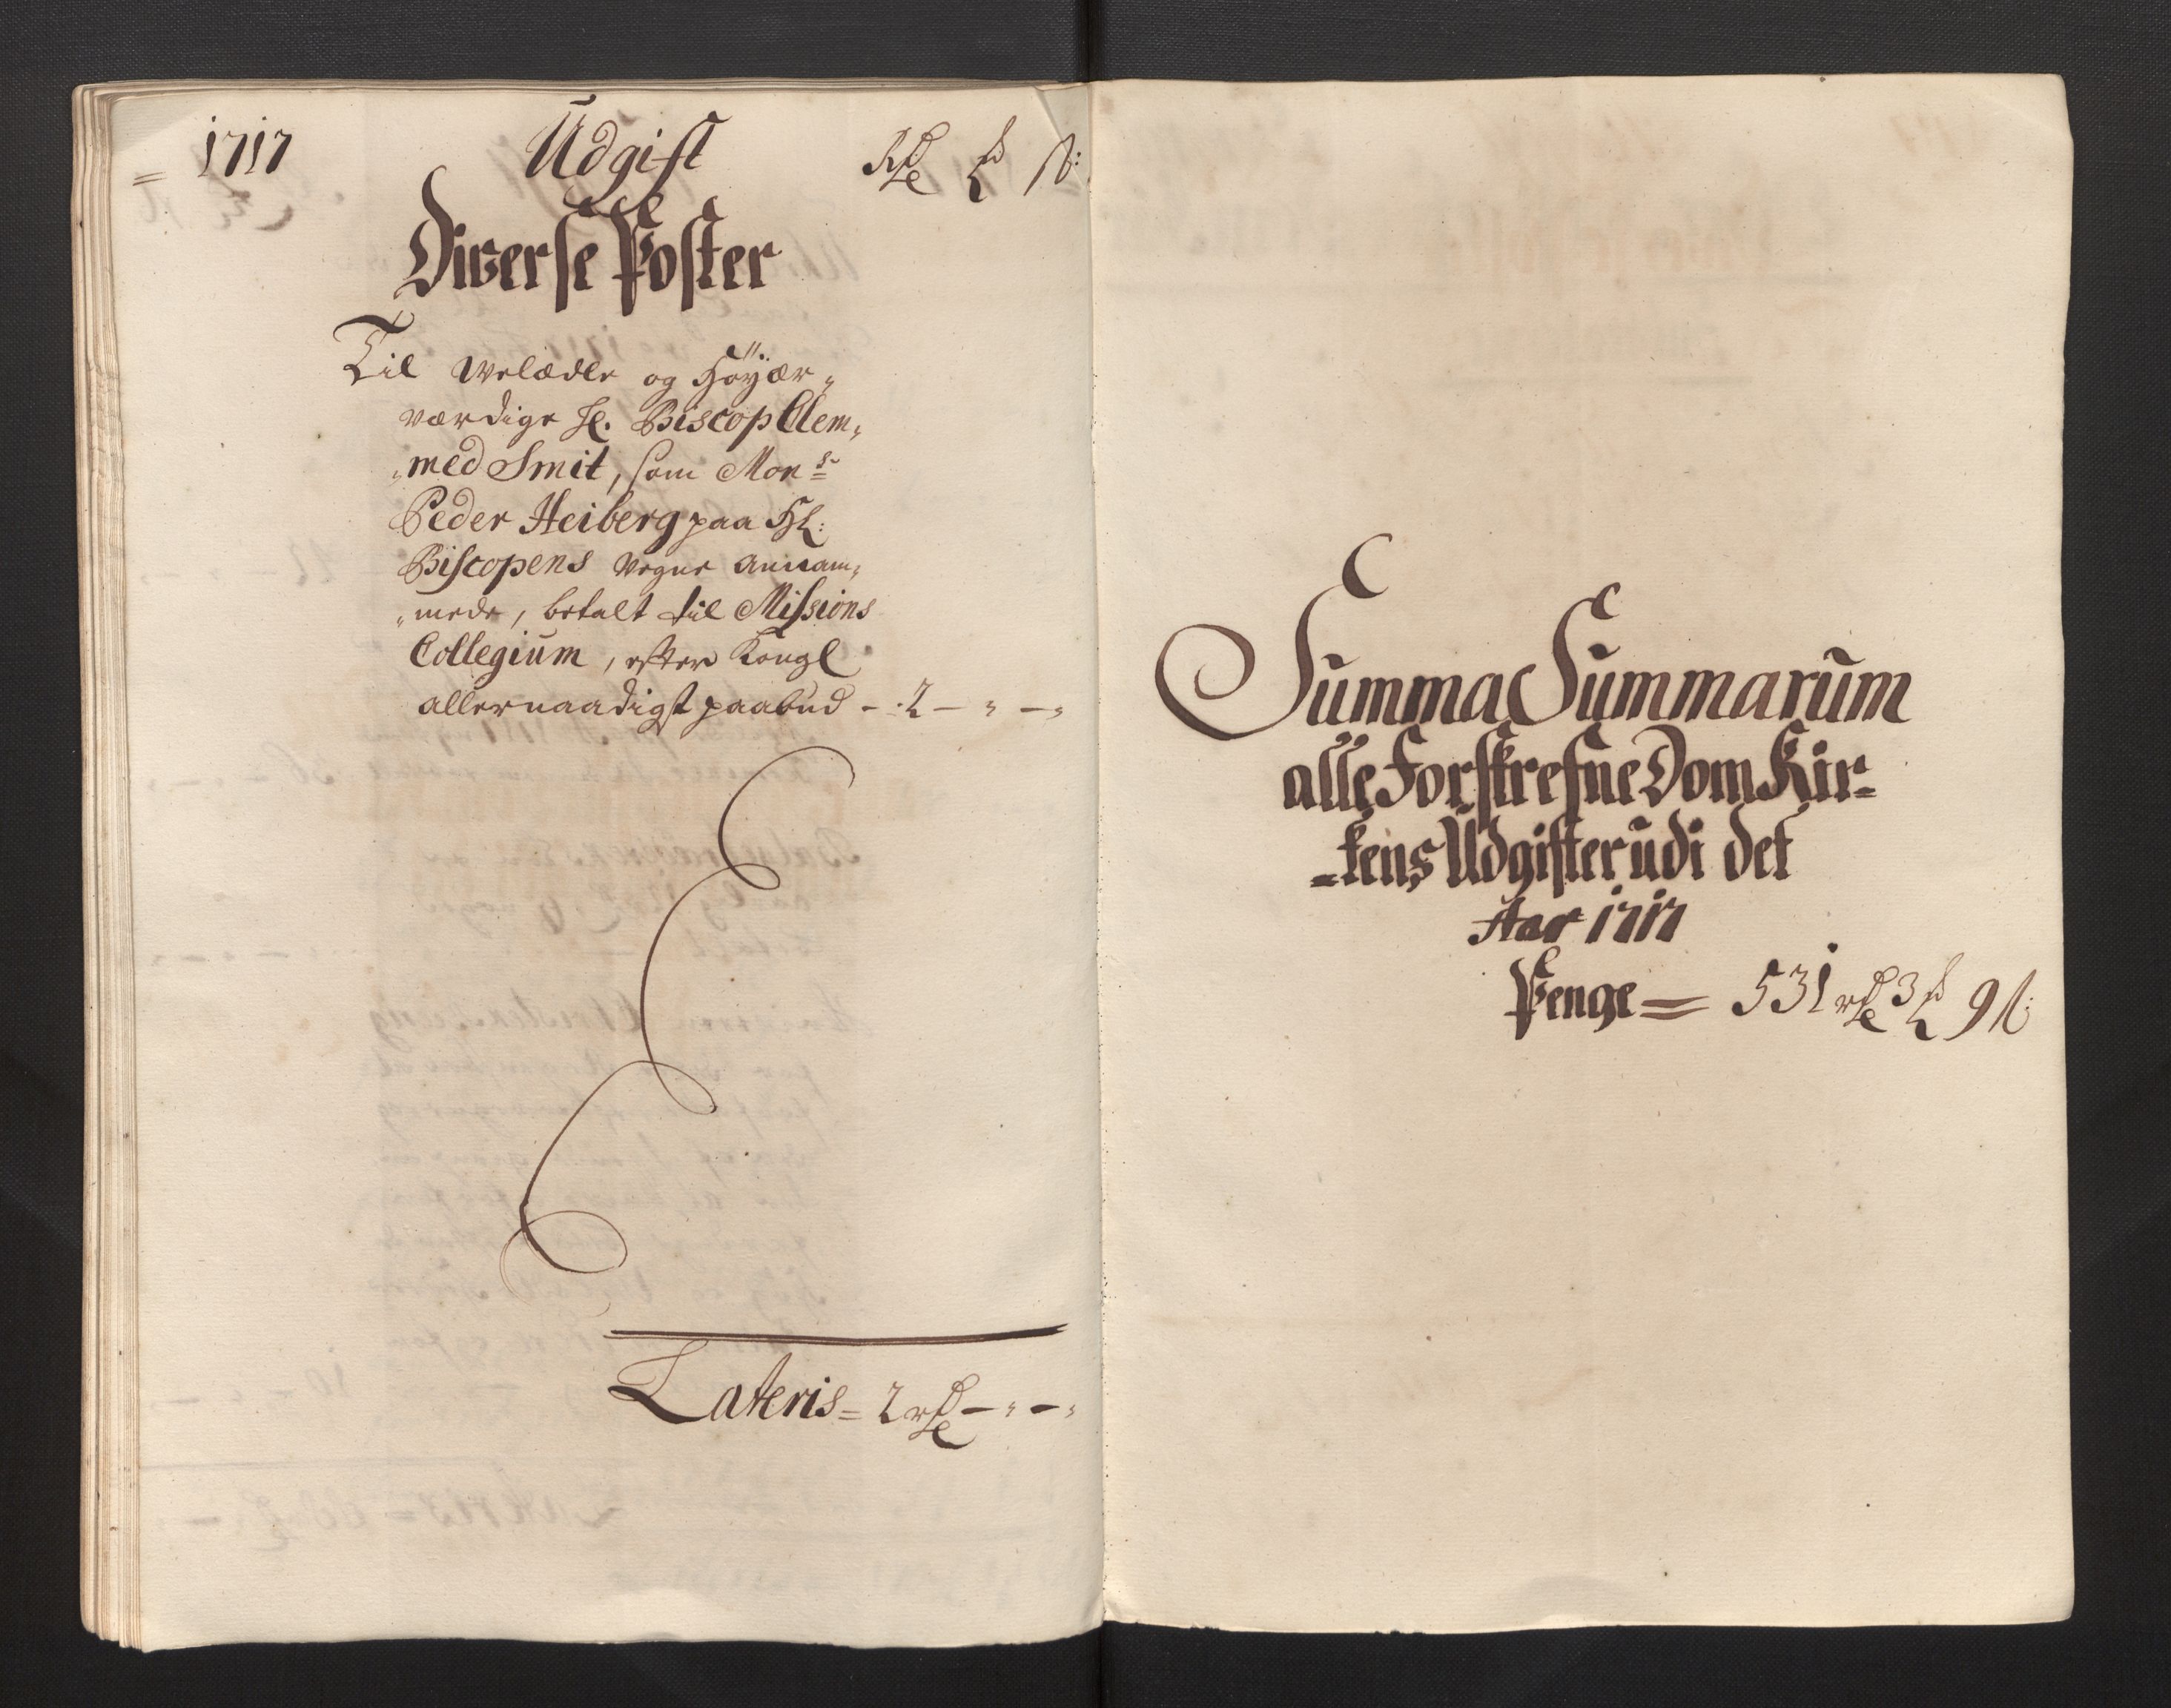 1717 Udgift Rdr ₰ ß:
Diverse Poster
Til Welædle og Höÿær„
værdige H. Biscop Clem„
„med Smit, som Mons:
Peder Heiberg paa Hl:
Biscopens vegne annam„
„mede, betalt til Missions
Collegium, efter Kongl
allernaadigst paabud - 2 — „ — „
Lateris = 2 rdr — „ — „
Summa Summarum
alle Forskrefne Dom Kir=
=kens Udgifter udi det
Aar 1717
Penge = 531 rdr 3 ₰ 9 ß: